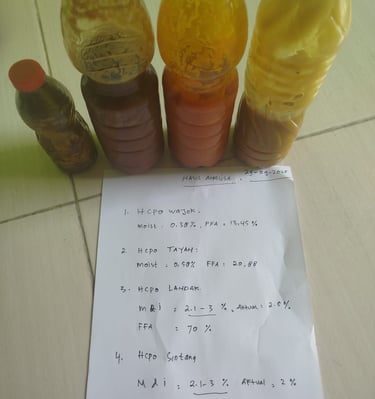 HASIL ANALISA.
1. HCPO WAJOK.
moist : 0.38%, FFA = 13.45 %
2. Hcpo TAYAN:
moist : 0.50% FFA : 20.88
3. Hcpo LANDAK.
M & i = 2.1-3 %, Aktual = 2.0%
FFA = 70 %
4. Hcpo Sintang
M & i = 2.1-3 % Aktual = 2 %